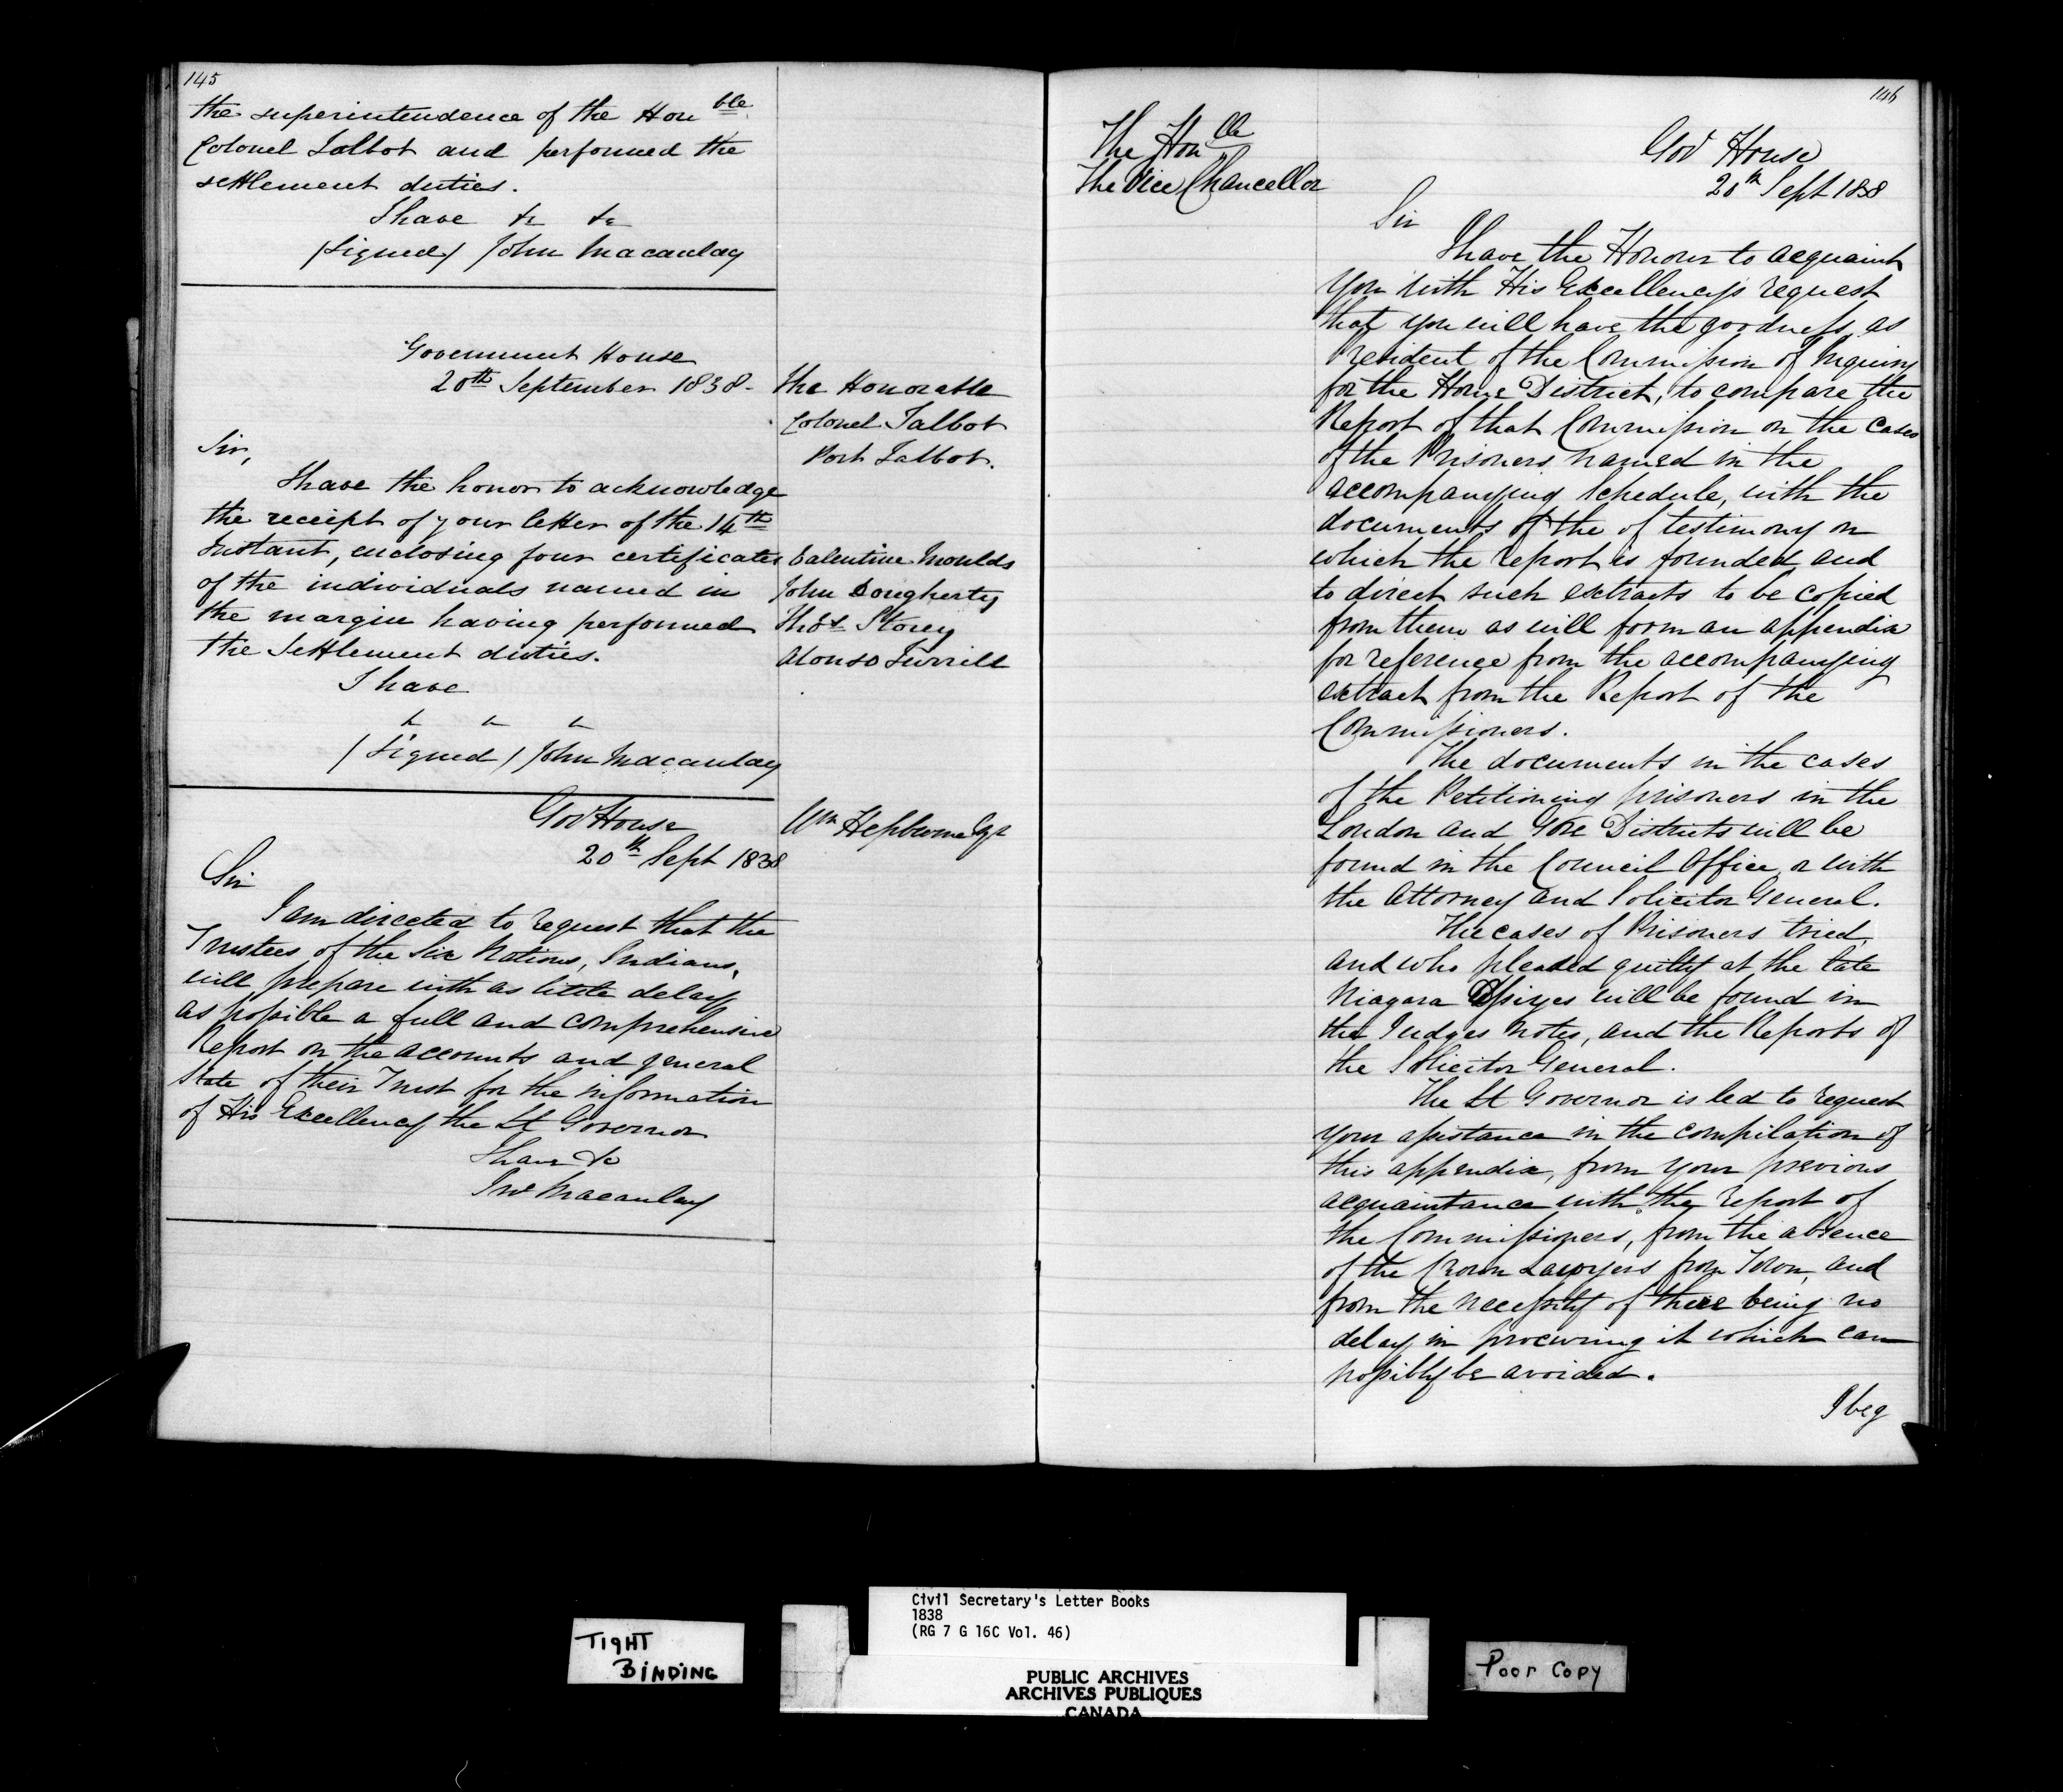 145
the superintendence of the Honble
Colonel Talbot and performed the
settlement duties.
I have &c &c
(Signed) John Macaulay
Government House
20th September 1838.
The Honorable
Colonel Talbot
Port Talbot.
Sir,
I have the honor to acknowledge
the receipt of your letter of the 14th
Instant, enclosing four certificates
of the individuals named in
the margin having performed
the Settlement duties.
Valentine Moulds
John Dougherty
Thos Storey
Alonso Turrill
I have
& & &
(Signed) John Macaulay
Govt House
20th Sept 1838
Wm Hepburne Esqr
Sir
I am directed to request that the
Trustees of the Six Nations, Indians,
will prepare with as little delay
as possible a full and comprehensive
Report on the accounts and general
State of their Trust for the information
of His Excellency the Lt Governor
I have &c
Jno Macaulay
146
The Honble
The Vice Chancellor
Govt House
20th Sept 1838
Sir
I have the Honour to acquaint
you with His Excellency's request
that you will have the goodness, as
President of the Commission of Inquiry
for the Home District, to compare the
Report of that Commission on the cases
of the Prisoners named in the
accompanying Schedule, with the
documents of the of testimony on
which the report is founded and
to direct such extracts to be copied
from them as will form an appendix
for reference from the accompanying
extract from the Report of the
Commissioners.
The documents in the cases
of the Petitioning prisoners in the
London and Gore Districts will be
found in the Council Office or with
the Attorney and Solicitor General.
The cases of Prisoners tried,
and who pleaded guilty at the late
Niagara Assizes will be found in
the Judges notes, and the Reports of
the Solicitor General.
The Lt Governor is led to request
your assistance in the compilation of
this appendix, from your previous
acquaintance with the report of
the Commissioners, from the absence
of the Crown Lawyers from Town, and
from the necessity of there being no
delay in procuring it which can
possibly be avoided.
I beg
TIGHT
BINDING
Civil Secretary's Letter Books
1838
(RG 7 G 16C Vol. 46)
PUBLIC ARCHIVES
ARCHIVES PUBLIQUES
CANADA
Poor Copy